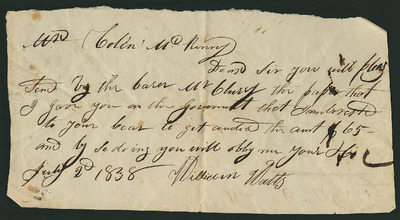 Mr Colin McKinny
Dear Sir you will pleas
Send by the barer Mr the paper that
I gave you on the that
to your to get the amt $65
and by so doing you will oblige me yours &c
July 2d 1838 William Watts